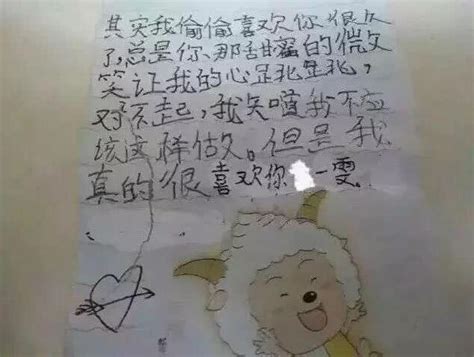 其实我偷偷喜欢你很久
了,总是你那甜蜜的微
笑让我的心是兆是兆,
对不起,我知道我不应
该这样做。但是我
真的很喜欢你 一雯。